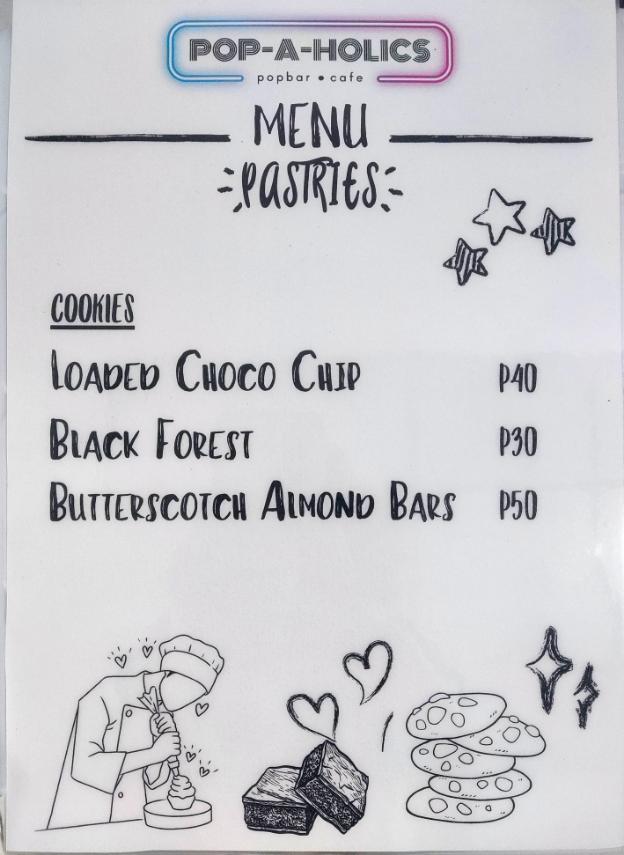 POP-A-HOLICS
popbar • cafe
MENU
PASTRIES
COOKIES
LOADED CHOCO CHIP P40
BLACK FOREST P30
BUTTERSCOTCH ALMOND BARS P50